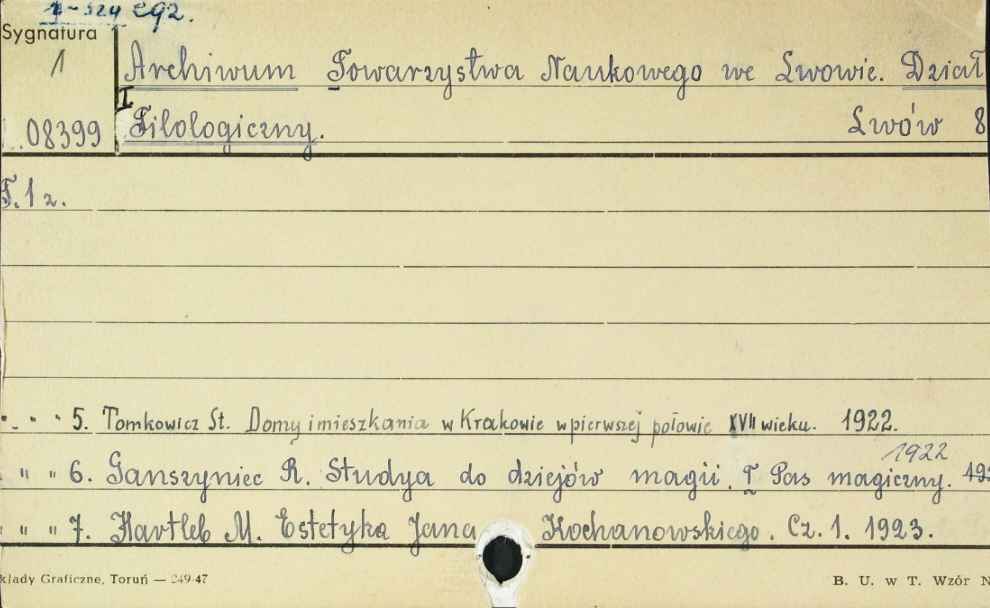 egz.
Sygnatura
1 Archiwum Towarzystwa Naukowego we Lwowie. Dział
I
08399 Filologiczny. Lwów 8
T.1 z.
" " " 5. Tomkowicz St. Domy i mieszkania w Krakowie w pierwszej połowie XVII wieku. 1922.
1922
" " 6. Ganszyniec R. Studya do dziejów magii. I Pas magiczny. 192
" " 7. Hartleb M. Estetyka Jana Kochanowskiego. Cz. 1. 1923.
kłady Graficzne, Toruń — 249-47 B. U. w T. Wzór N